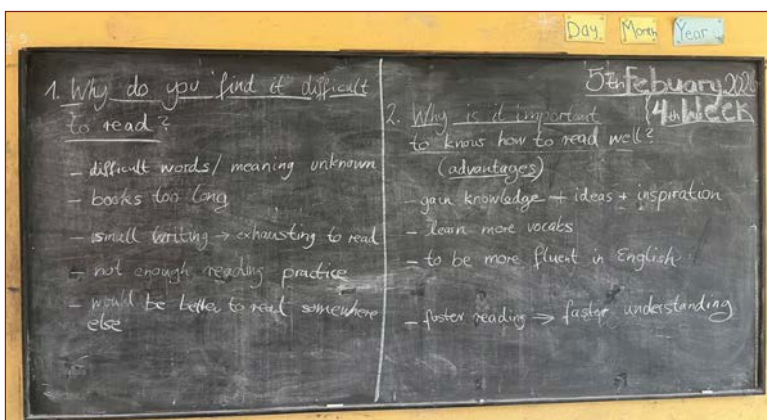 Day Month Year
1. Why do you find it difficult
to read?
- difficult words / meaning unknown
- books too long
- small writing → exhausting to read
- not enough reading practice
- would be better to read somewhere
else
5th Febuary 202
4th Week
2. Why is it important
to know how to read well?
(advantages)
- gain knowledge + ideas + inspiration
- learn more vocabs
- to be more fluent in English
- faster reading → faster understanding